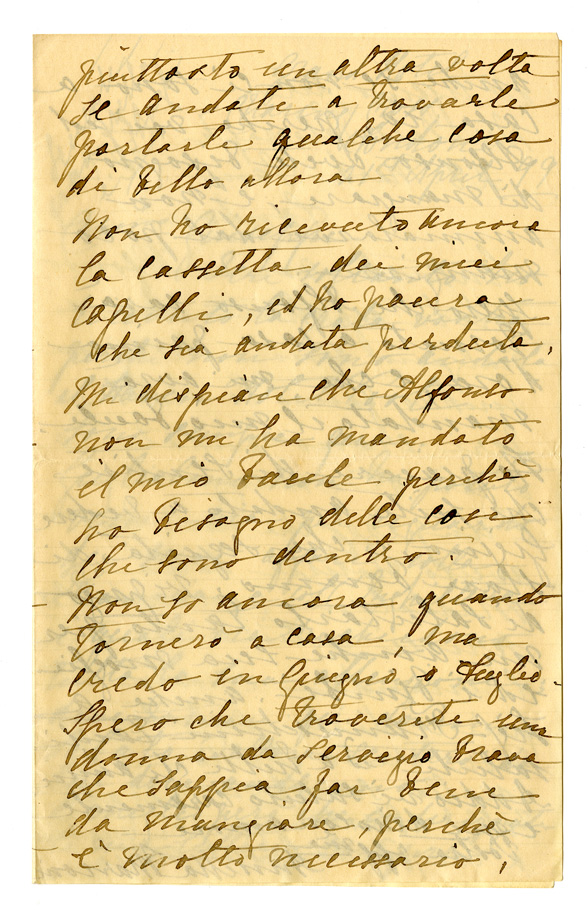 piuttosto un altra volta
se andate a trovarle
portarle qualche cosa
di bello allora
Non ho ricevuto ancora
la cassetta dei miei
capelli, ed ho paura
che sia andata perduta.
Mi dispiace che Alfonso
non mi ha mandato
il mio baule perchè
ho bisogno delle cose
che sono dentro.
Non so ancora quando
tornerò a casa, ma
credo in Giugno o Luglio.
Spero che troverete una
donna da servizio brava
che sappia far bene
da mangiare, perchè
è molto necessario,